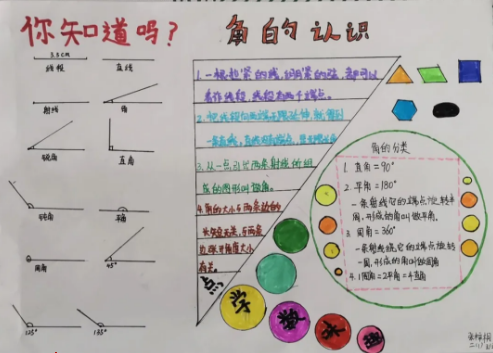 你知道吗？
角的认识
线段
直线
射线
角
锐角
直角
钝角
平角
周角
45°
135°
1.一根拉紧的线,绷紧的弦,都可以
看作线段,线段有两个端点。
2.把线段向两端无限延伸,就得到
一条直线,直线没有端点,
3.从一点引出两条射线所组
成的图形叫做角。
4.角的大小与两条边的
长短无关,与两条
边张开角度大小
有关。
角的分类
1.直角=90°
2.平角=180°
一条射线它的端点旋转半
周,形成的角叫做平角。
3.周角=360°
一条射线绕它的端点旋转
一周,形成的角叫做周角
4.1周角=2平角=4直角
点
学
数